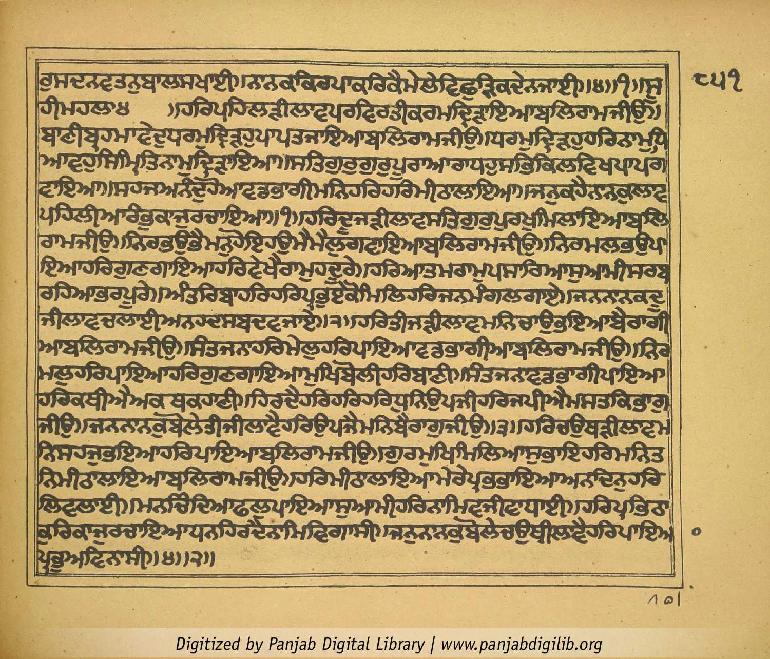 ਗੁਸਦਨਵਤਨਬਾਲਸਖਾਈ॥ਨਾਨਕਕਿਰਪਾਕਰਿਕੈਮੇਲੇਵਿਛੁੜਿਕਦੇਨਜਾਈ॥੪॥੧॥ਸੂ ੮੫੧
ਹੀਮਹਲਾ੪ ॥ਹਰਿਪਹਿਲੜੀਲਾਵਪਰਵਿਰਤੀਕਰਮਦ੍ਰਿੜਾਇਆਬਲਿਰਾਮਜੀਉ॥
ਬਾਣੀਬ੍ਰਹਮਾਵੇਦੁਧਰਮੁਦ੍ਰਿੜਹੁਪਾਪਤਜਾਇਆਬਲਿਰਾਮਜੀਉ॥ਧਰਮੁਦ੍ਰਿੜਹੁਹਰਿਨਾਮੁਧਿ
ਆਵਹੁਸਿਮ੍ਰਿਤਿਨਾਮੁਦ੍ਰਿੜਾਇਆ॥ਸਤਿਗੁਰੁਗੁਰੁਪੂਰਾਆਰਾਧਹੁਸਭਿਕਿਲਵਿਖਪਾਪਗ
ਵਾਇਆ॥ਸਹਜਅਨੰਦੁਹੋਆਵਡਭਾਗੀਮਨਿਹਰਿਹਰਿਮੀਠਾਲਾਇਆ॥ਜਨੁਕਹੈਨਾਨਕੁਲਾਵ
ਪਹਿਲੀਆਰੰਭੁਕਾਜੁਰਚਾਇਆ॥੧॥ਹਰਿਦੂਜੜੀਲਾਵਸਤਿਗੁਰੁਪੁਰਖੁਮਿਲਾਇਆਬਲਿ
ਰਾਮਜੀਉ॥ਨਿਰਭਉਭੈਮਨੁਹੋਇਹਉਮੈਮੈਲੁਗਵਾਇਆਬਲਿਰਾਮਜੀਉ॥ਨਿਰਮਲਭਉਪਾ
ਇਆਹਰਿਗੁਣਗਾਇਆਹਰਿਵੇਖੈਰਾਮੁਹਦੂਰੇ॥ਹਰਿਆਤਮਰਾਮੁਪਸਾਰਿਆਸੁਆਮੀਸਰਬ
ਰਹਿਆਭਰਪੂਰੇ॥ਅੰਤਰਿਬਾਹਰਿਹਰਿਪ੍ਰਭੁਏਕੋਮਿਲਿਹਰਿਜਨਮੰਗਲਗਾਏ॥ਜਨਨਾਨਕਦੂ
ਜੀਲਾਵਚਲਾਈਅਨਹਦਸਬਦਵਜਾਏ॥੨॥ਹਰਿਤੀਜੜੀਲਾਵਮਨਿਚਾਉਭਇਆਬੈਰਾਗੀ
ਆਬਲਿਰਾਮਜੀਉ॥ਸੰਤਜਨਾਹਰਿਮੇਲੁਹਰਿਪਾਇਆਵਡਭਾਗੀਆਬਲਿਰਾਮਜੀਉ॥ਨਿਰ
ਮਲੁਹਰਿਪਾਇਆਹਰਿਗੁਣਗਾਇਆਮੁਖਿਬੋਲੀਹਰਿਬਾਣੀ॥ਸੰਤਜਨਵਡਭਾਗੀਪਾਇਆ
ਹਰਿਕਥੀਐਅਕਥਕਹਾਣੀ॥ਹਿਰਦੈਹਰਿਹਰਿਹਰਿਧੁਨਿਉਪਜੀਹਰਿਜਪੀਐਮਸਤਕਿਭਾਗੁ
ਜੀਉ॥ਜਨਨਾਨਕੁਬੋਲੇਤੀਜੀਲਾਵੈਹਰਿਉਪਜੈਮਨਿਬੈਰਾਗੁਜੀਉ॥੩॥ਹਰਿਚਉਥੜੀਲਾਵਮ
ਨਿਸਹਜੁਭਇਆਹਰਿਪਾਇਆਬਲਿਰਾਮਜੀਉ॥ਗੁਰਮੁਖਿਮਿਲਿਆਸੁਭਾਇਹਰਿਮਨਿਤ
ਨਿਮੀਠਾਲਾਇਆਬਲਿਰਾਮਜੀਉ॥ਹਰਿਮੀਠਾਲਾਇਆਮੇਰੇਪ੍ਰਭਭਾਇਆਅਨਦਿਨੁਹਰਿ
ਲਿਵਲਾਈ॥ਮਨਚਿੰਦਿਆਫਲੁਪਾਇਆਸੁਆਮੀਹਰਿਨਾਮਿਵਜੀਵਾਧਾਈ॥ਹਰਿਪ੍ਰਭਿਠਾ
ਕੁਰਿਕਾਜੁਰਚਾਇਆਧਨਹਿਰਦੈਨਾਮਿਵਿਗਾਸੀ॥ਜਨੁਨਾਨਕੁਬੋਲੇਚਉਥੀਲਾਵੈਹਰਿਪਾਇਆ
ਪ੍ਰਭੁਅਵਿਨਾਸੀ॥੪॥੨॥
Digitized by Panjab Digital Library | www.panjabdigilib.org